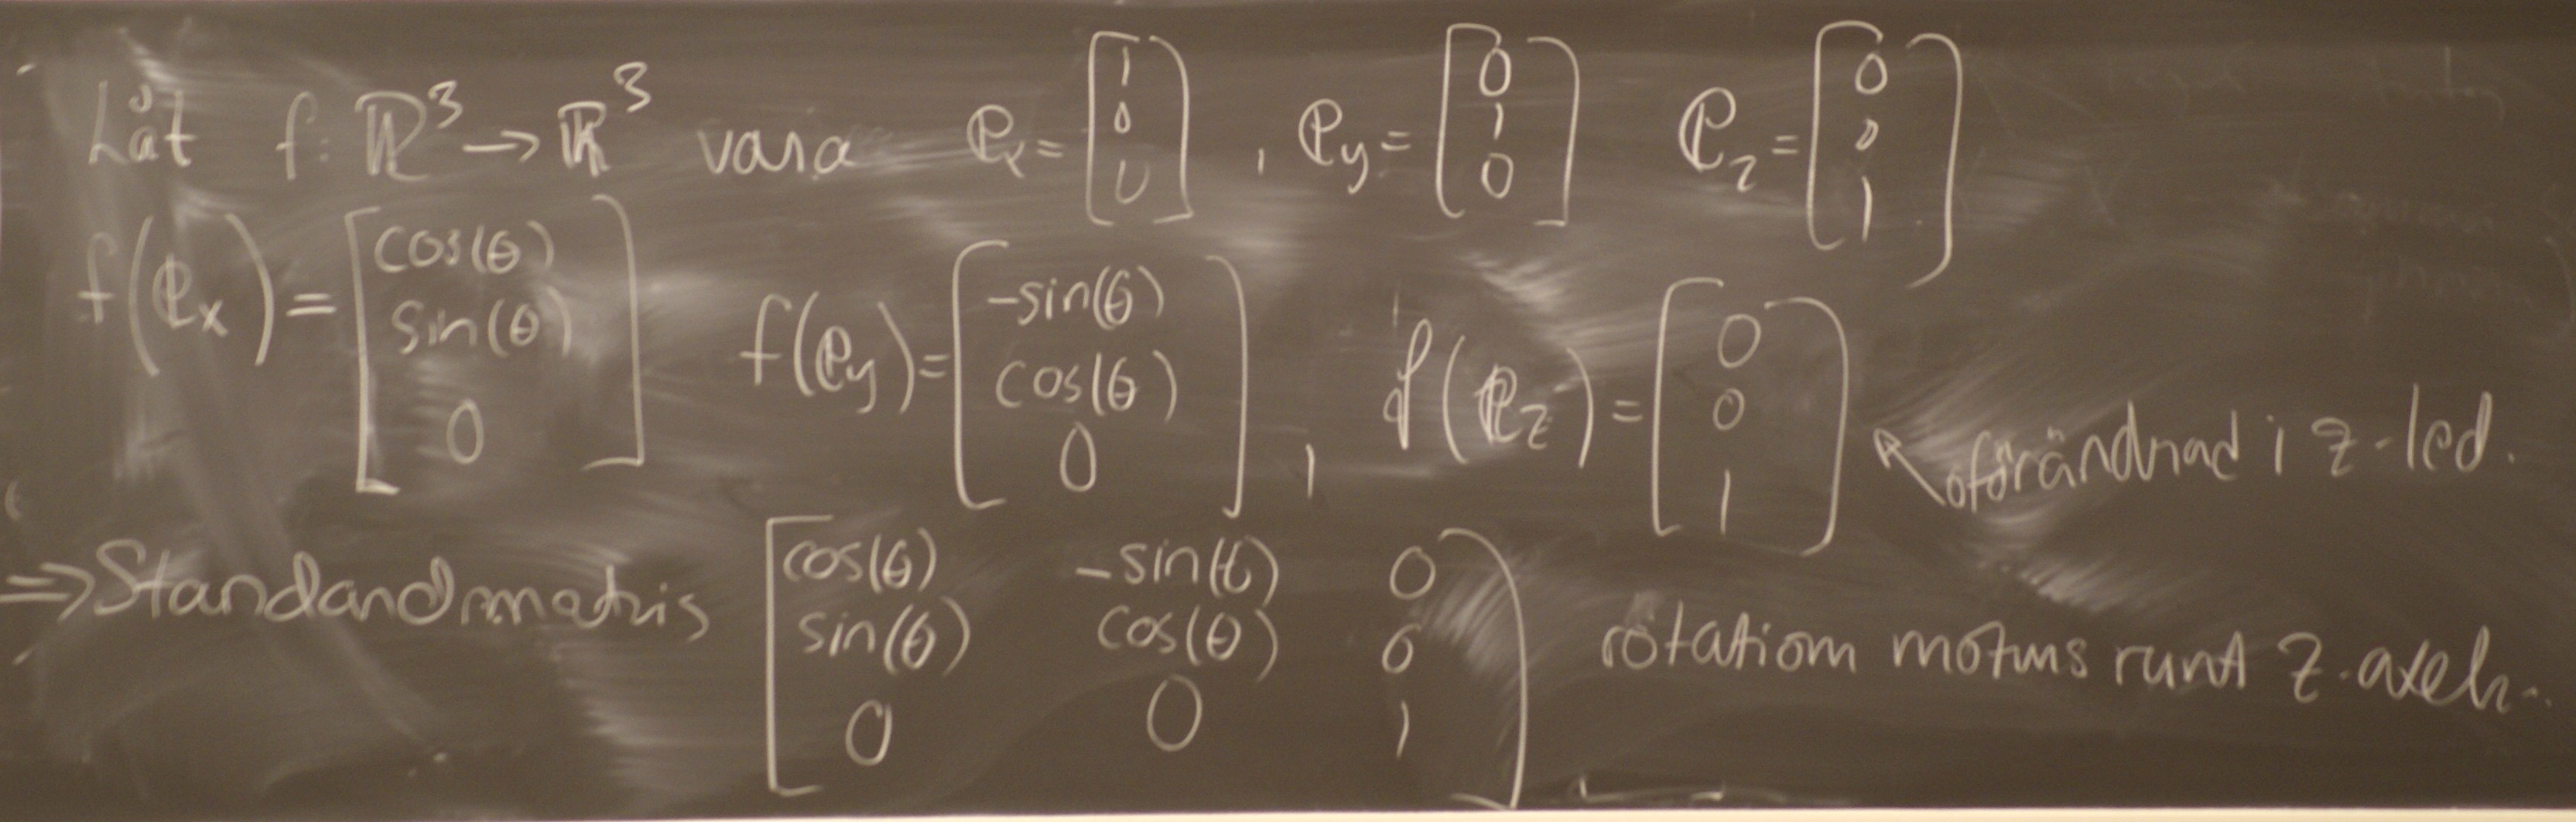 Låt f: ℝ³ → ℝ³ vara e_x = [1 0 0] , e_y = [0 1 0] e_z = [0 0 1]
f(e_x) = [cos(θ) sin(θ) 0] f(e_y) = [-sin(θ) cos(θ) 0] , f(e_z) = [0 0 1] ↖ oförändrad i z-led.
⇒ Standardmatris [cos(θ) -sin(θ) 0
sin(θ) cos(θ) 0
0 0 1] rotation moturs runt z-axeln.